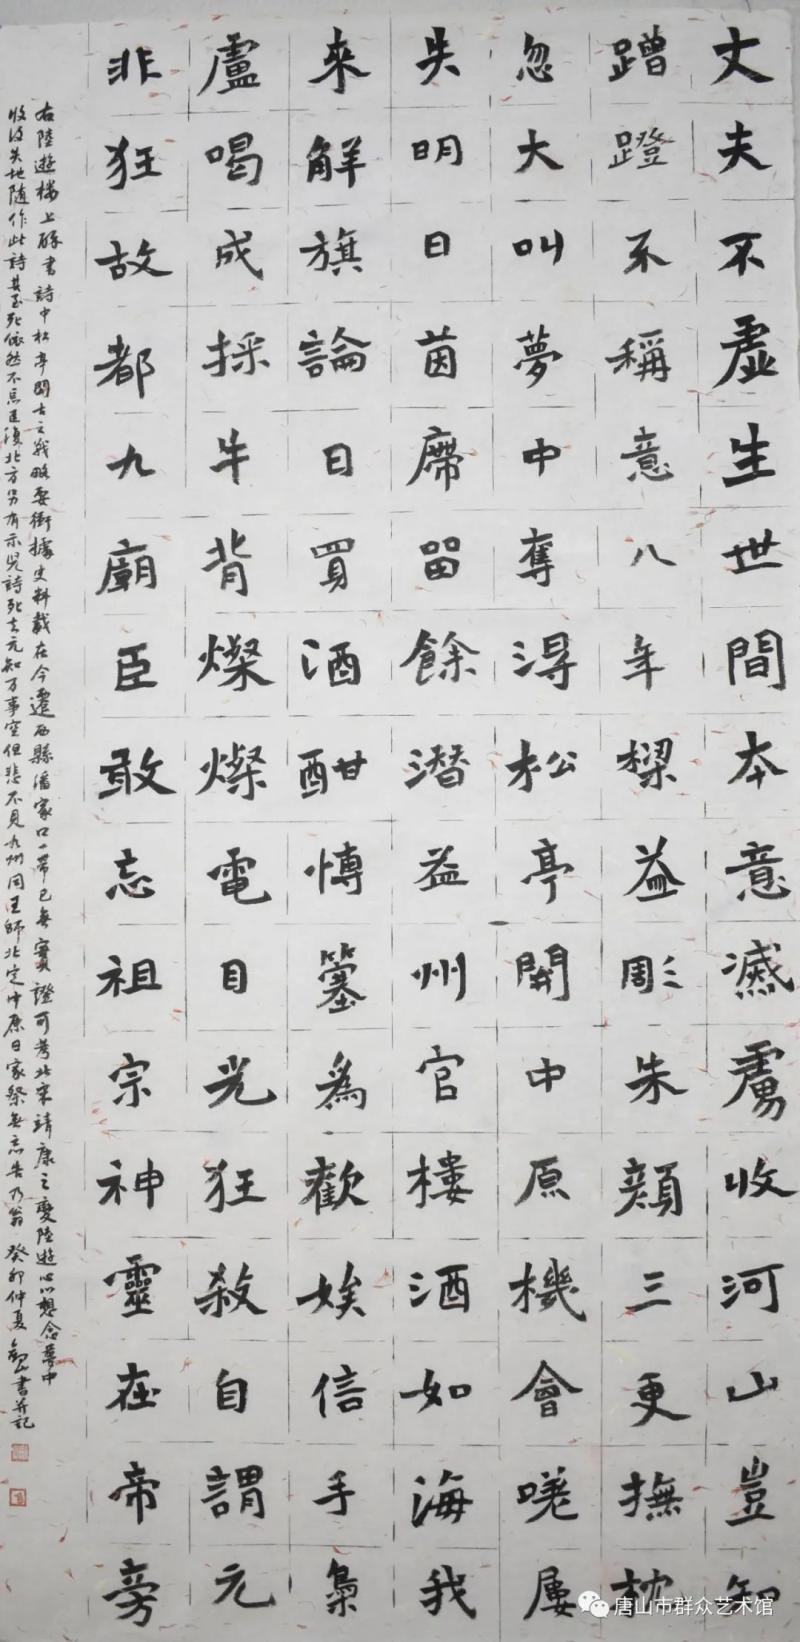 丈夫不虛生世間本意滅虜收河山豈知
蹭蹬不稱意八年樑益彫朱顏三更撫枕
忽大叫夢中奪得松亭關中原機會嘆屢
失明日茵席留餘潸益州官樓酒如海我
來解旗論日買酒酣博簺為歡娛信手梟
盧喝成採牛背爍爍電目光狂殺自謂元
非狂故都九廟臣敢忘祖宗神靈在帝旁
右陸遊樓上醉書詩中松亭關古之戰略要衝據史料載在今遷西縣潘家口一帶已無實證可考北宋靖康之變陸遊心心想念夢中
收復失地隨作此詩其至死依然不忘匡復北方另有示兒詩死去元知萬事空但悲不見九州同王師北定中原日家祭無忘告乃翁 癸卯仲夏 書並記
唐山市群众艺术馆